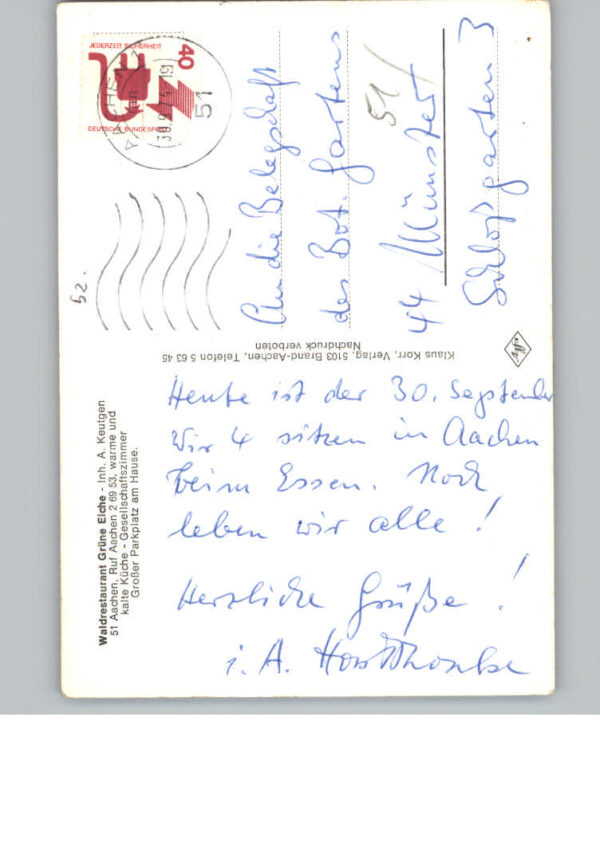 Waldrestaurant Grüne Eiche - Inh. A. Keutgen
51 Aachen, Ruf Aachen 2 69 53, warme und
kalte Küche - Gesellschaftszimmer
Großer Parkplatz am Hause.
Heute ist der 30. September
Wir 4 sitzen in Aachen
beim Essen. Noch
leben wir alle!
Herzliche Grüße!
i. A. Horst
Klaus Korr, Verlag, 5103 Brand-Aachen, Telefon 5 63 45
Nachdruck verboten
52.
JEDERZEIT SICHERHEIT
40
DEUTSCHE BUNDESPOST
AACHEN
30.9.74
51
An die Belegschaft
des Bot. Gartens
51/
44 Münster
Schloßgarten 3